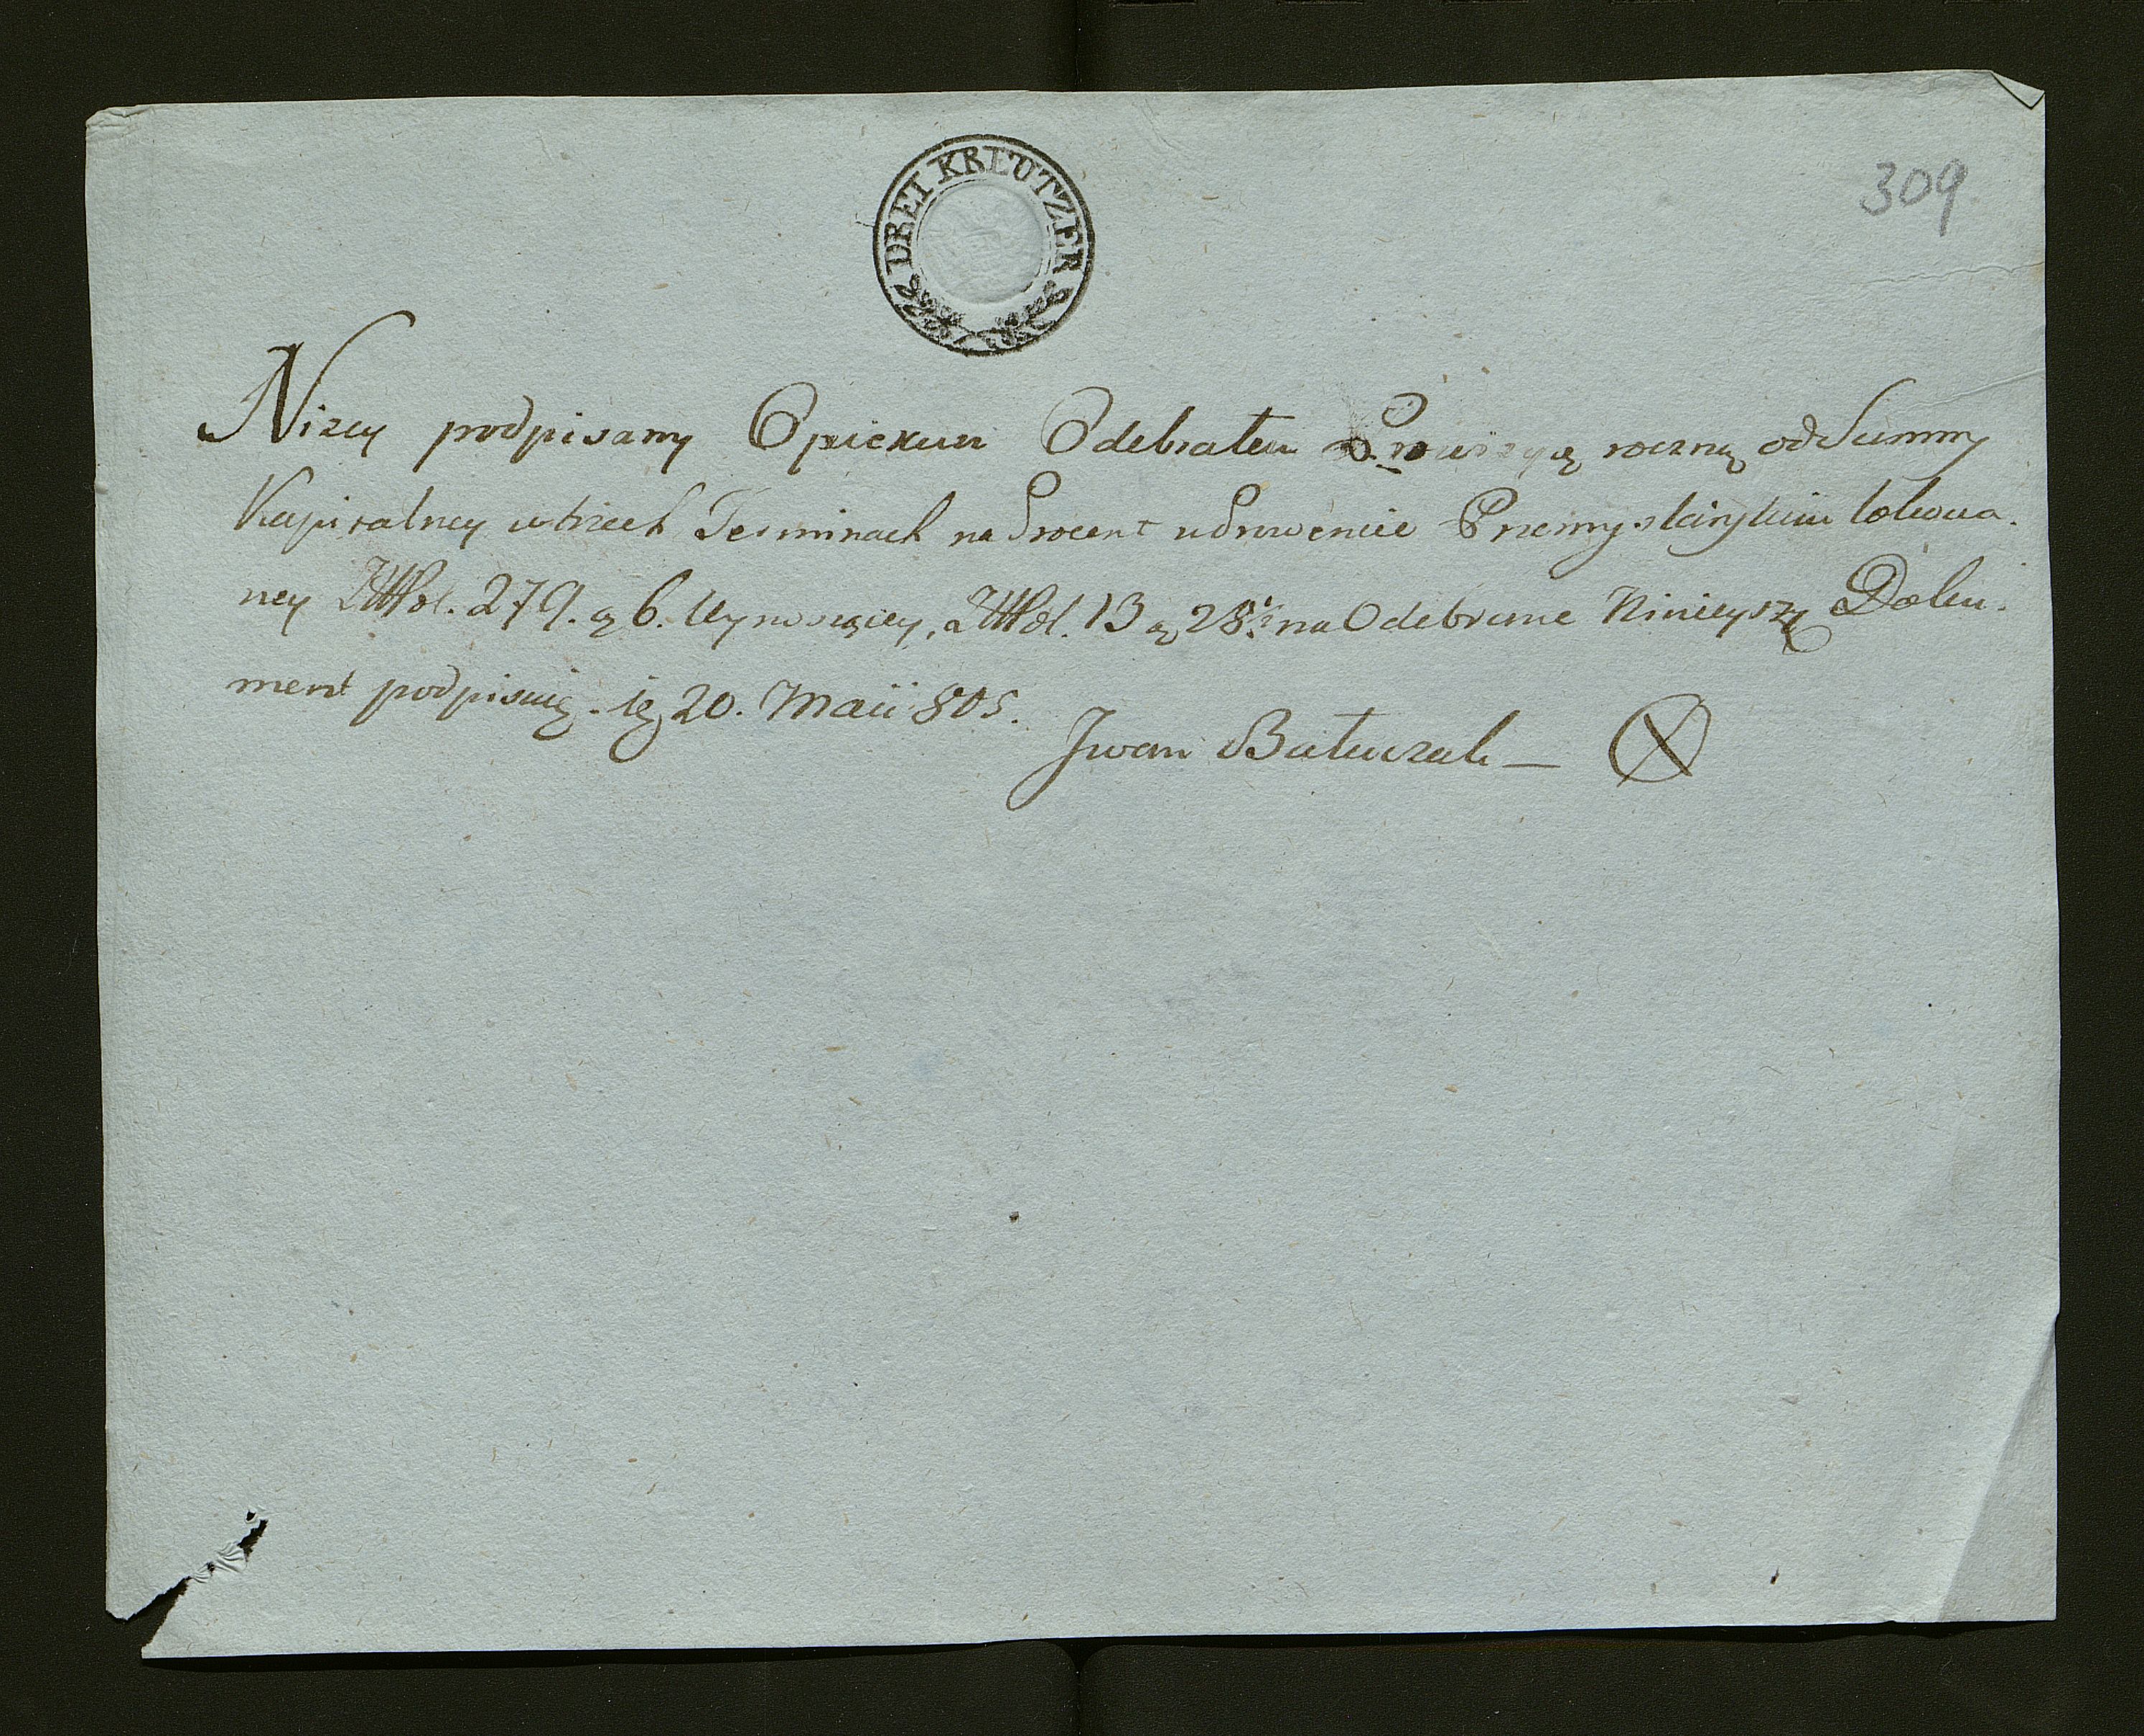 DREI KREUTZER
309
Nizey podpisany Opiekun Odebrałem Prowizyą roczną od Summy
Kapitalney w trzech Terminach na Procent Przemyskim lokowa.
ney 279. 6. Wynoszącey, a 13 28 na Odebranie Ninieyszy Doku.
ment podpisuię. 20. Maii 805.
Iwan Bałuczak — X